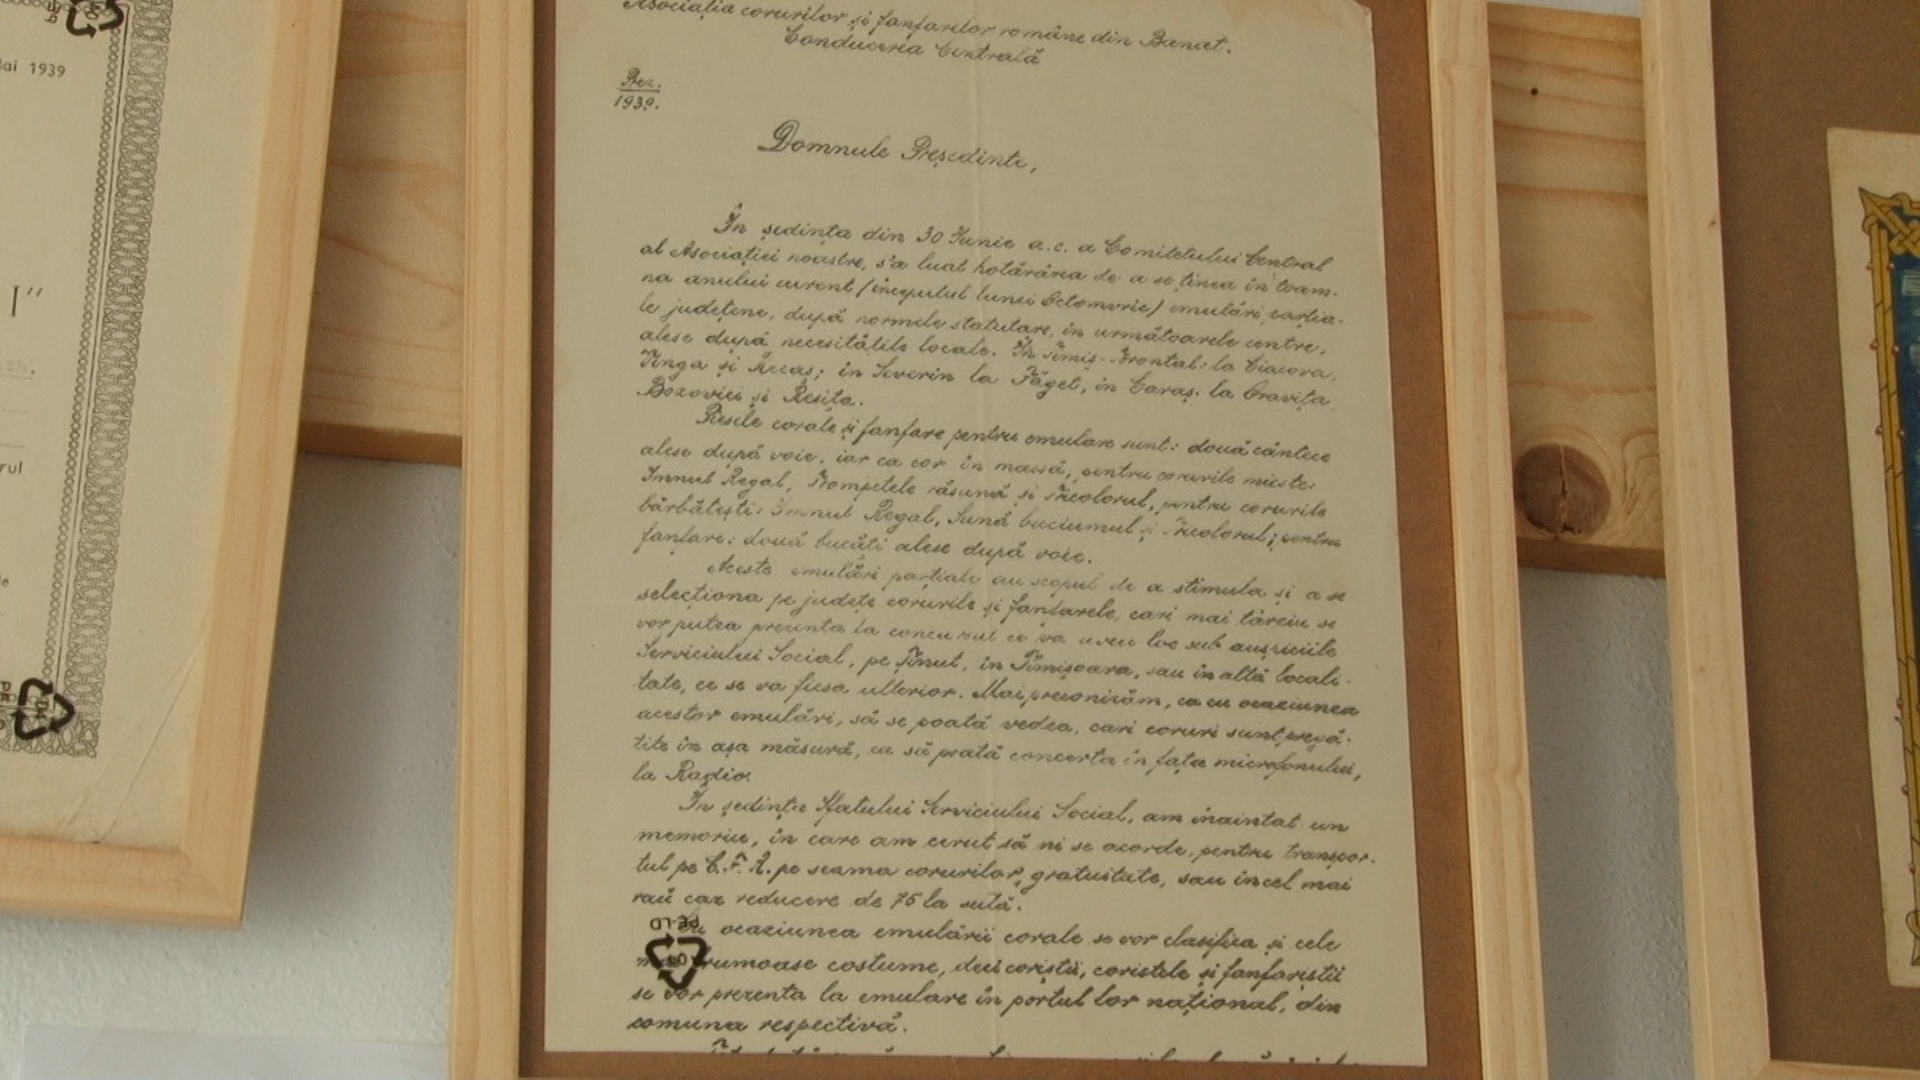 ai 1939
I"
rul
Asociația corurilor și fanfarelor române din Banat.
Conducerea Centrală
Prez.
1939.
Domnule Președinte,
În ședința din 30 Iunie a.c. a Comitetului Central
al Asociației noastre, s'a luat hotărârea de a se ținea în toam-
na anului curent (începutul lunei Octomvrie) emulări parția-
le județene, după normele statutare, în următoarele centre,
alese după necesitățile locale. În Timiș-Torontal: la Ciacova,
Vinga și Recaș; în Severin la Făget, în Caraș: la Oravița,
Bozovici și Reșița.
Piesele corale și fanfare pentru emulare sunt: două cântece
alese după voie, iar ca cor în massă, pentru corurile mixte:
Imnul Regal, Trompetele răsună și Tricolorul, pentru corurile
bărbătești: Imnul Regal, Sună buciumul și Tricolorul; pentru
fanfare: două bucăți alese după voie.
Aceste emulări parțiale au scopul de a stimula și a se
selecționa pe județe corurile și fanfarele, cari mai târziu se
vor putea prezenta la concursul ce va avea loc sub auspiciile
Serviciului Social, pe Ținut, în Timișoara, sau în altă locali-
tate, ce se va fixa ulterior. Mai preconizăm, ca cu ocaziunea
acestor emulări, să se poată vedea, cari coruri sunt pregă-
tite în așa măsură, ca să poată concerta în fața microfonului,
la Radio.
În ședința Sfatului Serviciului Social, am înaintat un
memoriu, în care am cerut să ni se acorde, pentru transpor-
tul pe C.F.R. pe seama corurilor, gratuitate, sau în cel mai
rău caz reducere de 75 la sută.
ocaziunea emulării corale se vor clasifica și cele
frumoase costume, deci coriștii, coristele și fanfariștii
se vor prezenta la emulare în portul lor național, din
comuna respectivă.
PE-LD